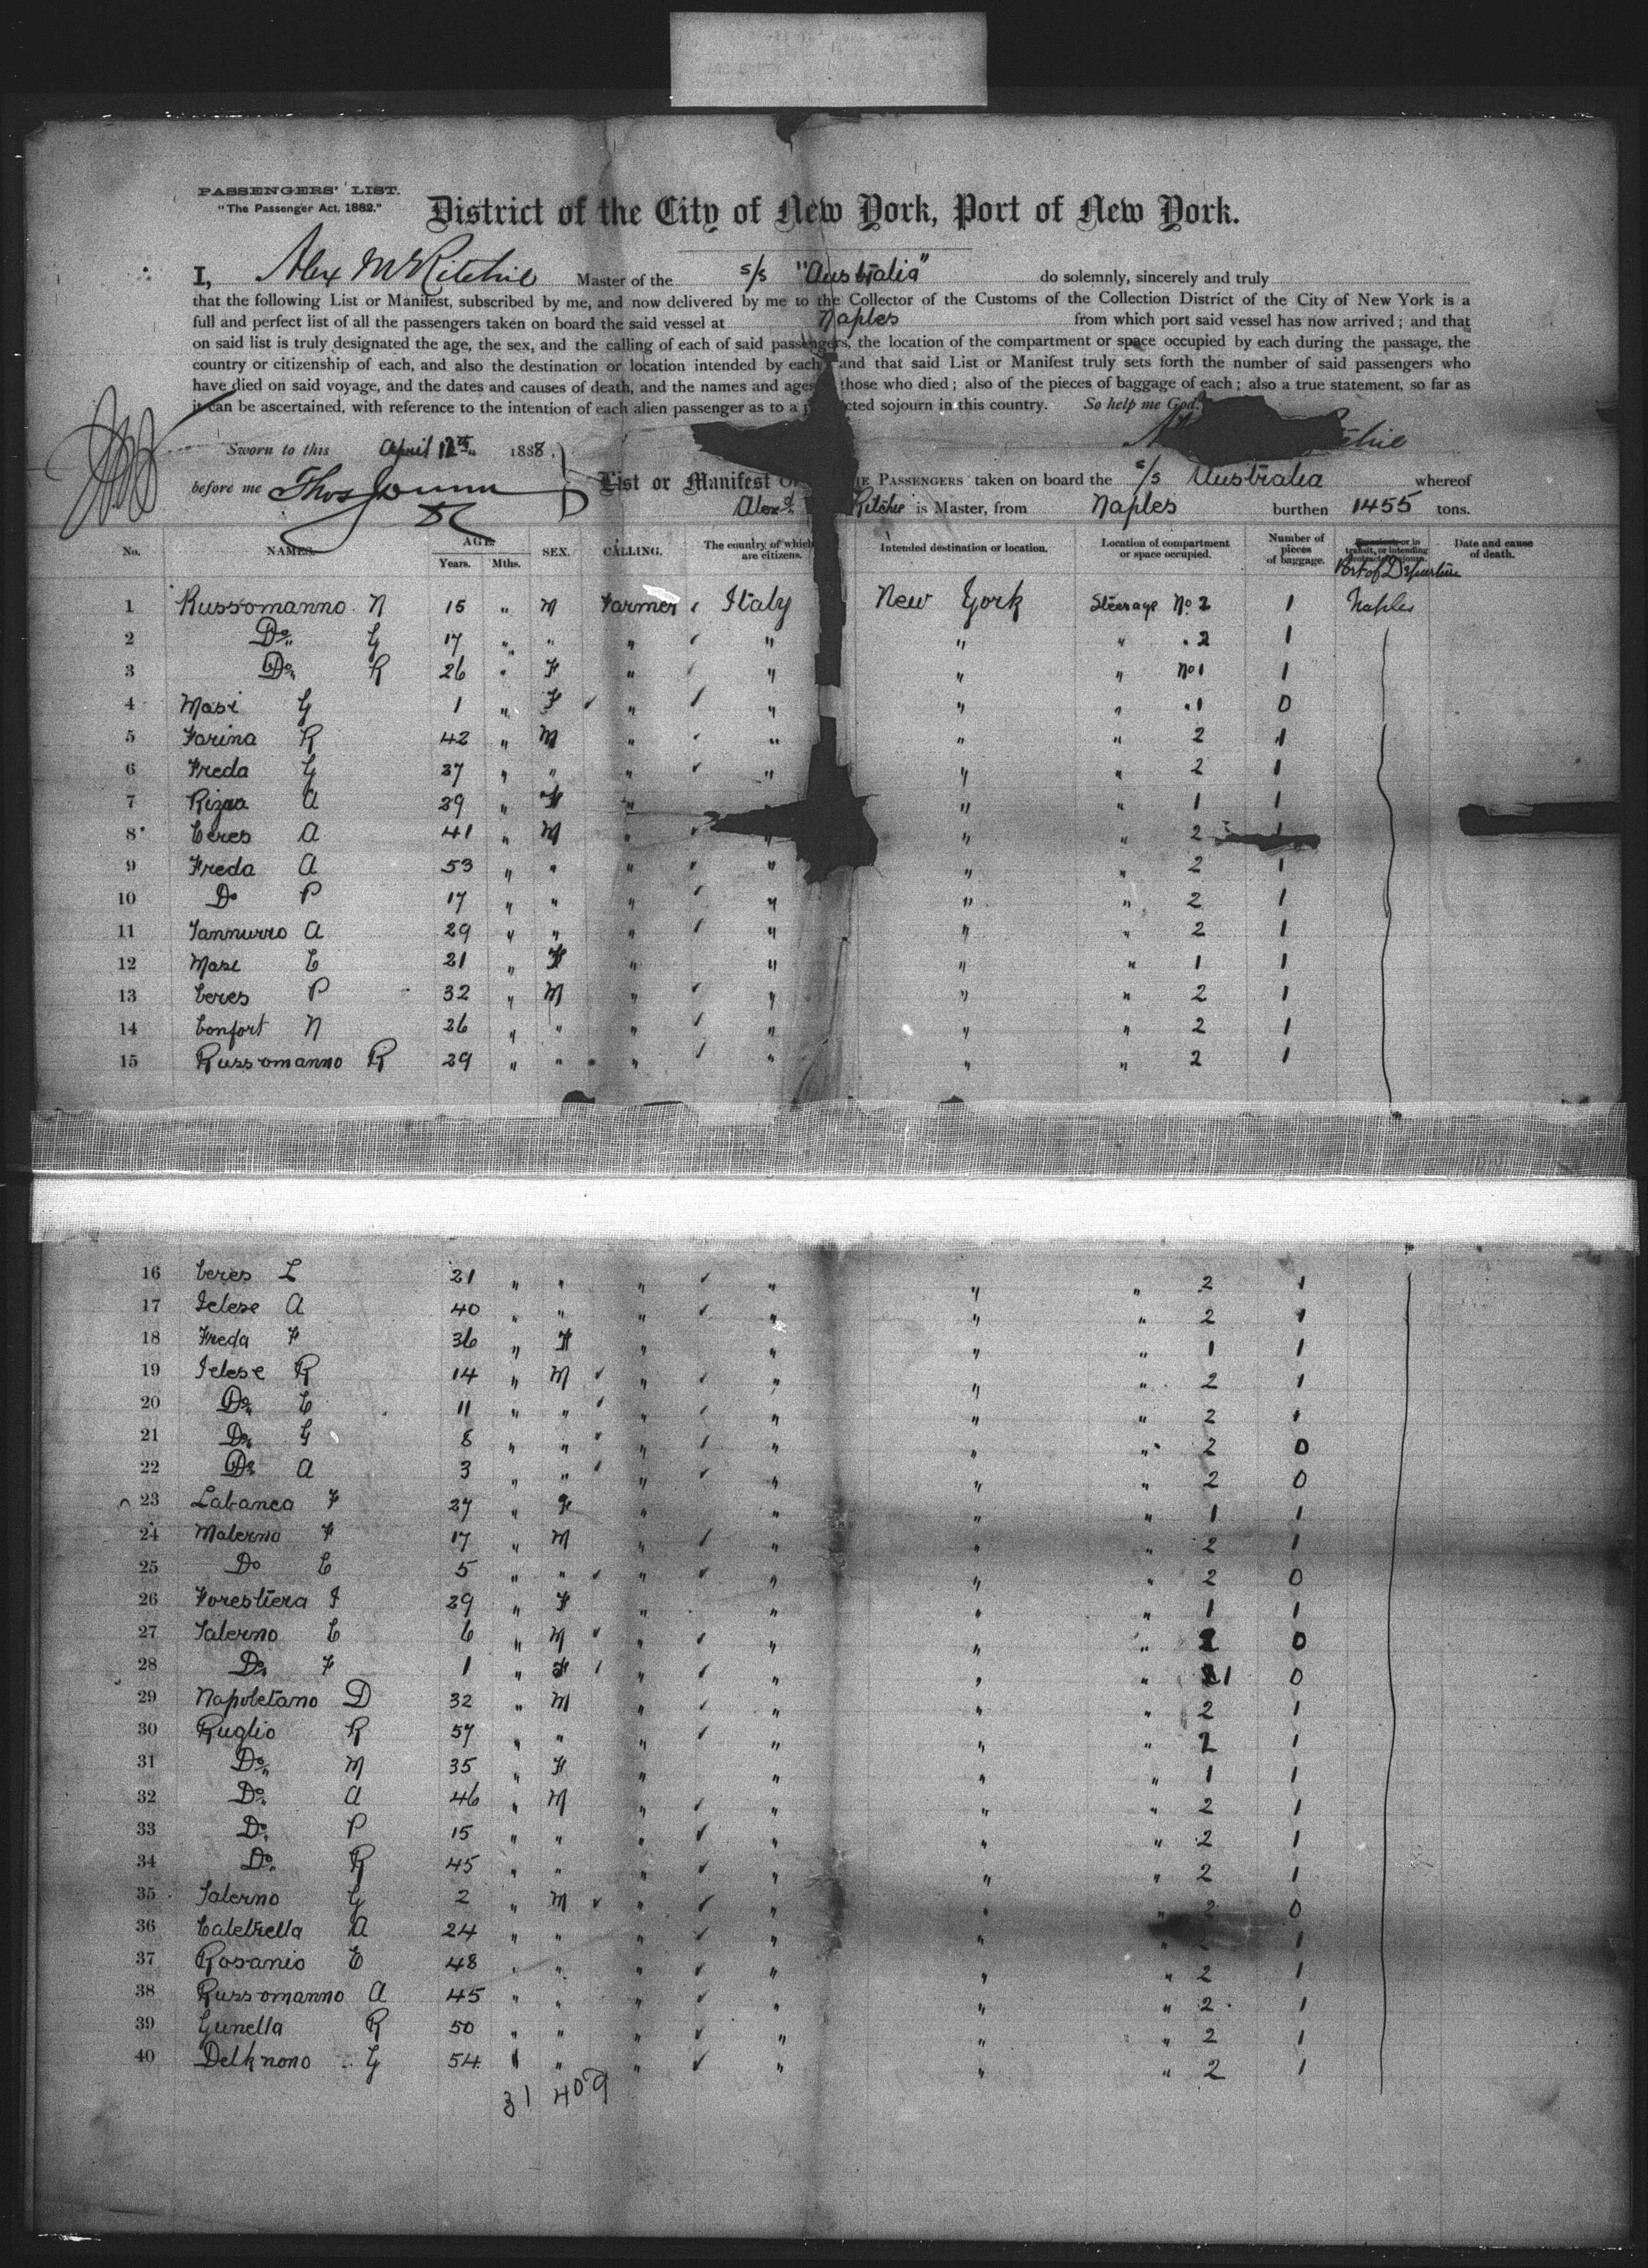 PASSENGERS' LIST.
"The Passenger Act, 1882."
District of the City of New York, Port of New York.
I, Alex McRitchie Master of the s/s "Australia" do solemnly, sincerely and truly
that the following List or Manifest, subscribed by me, and now delivered by me to the Collector of the Customs of the Collection District of the City of New York is a
full and perfect list of all the passengers taken on board the said vessel at Naples from which port said vessel has now arrived; and that
on said list is truly designated the age, the sex, and the calling of each of said passengers, the location of the compartment or space occupied by each during the passage, the
country or citizenship of each, and also the destination or location intended by each and that said List or Manifest truly sets forth the number of said passengers who
have died on said voyage, and the dates and causes of death, and the names and ages those who died; also of the pieces of baggage of each; also a true statement, so far as
it can be ascertained, with reference to the intention of each alien passenger as to a p cted sojourn in this country. So help me God.
Sworn to this April 12th 1888.
before me Thos
List or Manifest O HE PASSENGERS taken on board the s/s Australia whereof
Alexd. Ritchie is Master, from Naples burthen 1455 tons.
No. NAMES. AGE. Years. Mths. SEX. CALLING. The country of which are citizens. Intended destination or location. Location of compartment or space occupied. Number of pieces of baggage. transit, or intending Port of Departure Date and cause of death.
1 Russomanno N 15 " M Farmer Italy New York Steerage No. 2 1 Naples
2 Do. G 17 " " " " " " " 2 1
3 Do. R 26 " F " " " " No 1 1
4 Masi G 1 " F " " " " " 1 0
5 Farina R 42 " M " " " " 2 1
6 Freda G 37 " " " " " " 2 1
7 A 39 " F " " " 1 1
8 Ceres A 41 " M " " " " 2 1
9 Freda A 53 " " " " " " 2 1
10 Do P 17 " " " " " " 2 1
11 Iannurro A 29 " " " " " " 2 1
12 Masi C 21 " F " " " " 1 1
13 Ceres P 32 " M " " " " 2 1
14 Confort N 26 " " " " " " 2 1
15 Russomanno R 29 " " " " " " 2 1
16 Ceres L 21 " " " " " " 2 1
17 Ielese A 40 " " " " " " 2 1
18 Freda F 36 " F " " " " 1 1
19 Ielese R 14 " M " " " " 2 1
20 Do. C 11 " " " " " " 2 1
21 Do. G 8 " " " " " " 2 0
22 Do. A 3 " " " " " " 2 0
23 Labanca F 27 " F " " " " 1 1
24 Materno F 17 " M " " " " 2 1
25 Do C 5 " " " " " " 2 0
26 Forestiera I 29 " F " " " " 1 1
27 Salerno C 6 " M " " " " 2 0
28 Do. F 1 " F " " " " 1 0
29 Napoletano D 32 " M " " " " 2 1
30 Ruglio R 57 " " " " " " 2 1
31 Do. M 35 " F " " " " 1 1
32 Do. A 46 " M " " " " 2 1
33 Do. P 15 " " " " " " 2 1
34 Do. R 45 " " " " " " 2 1
35 Salerno G 2 " M " " " " 2 0
36 Caletrella A 24 " " " " " " 2 1
37 Rosanio E 48 " " " " " " 2 1
38 Russomanno A 45 " " " " " " 2 1
39 Gunella R 50 " " " " " " 2 1
40 G 54 " " " " " 2 1
31 409